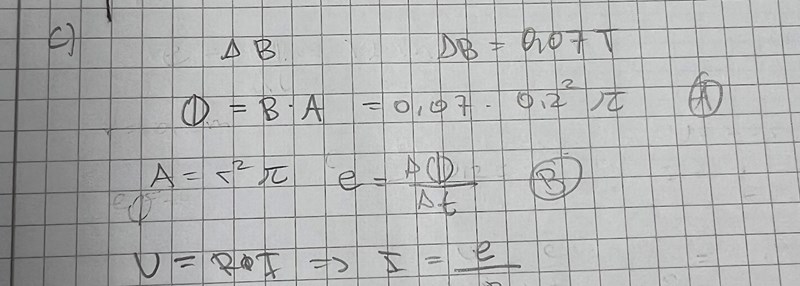 c) ΔB ΔB = 0,07 T
Φ = B · A = 0,07 · 0,2² π Ⓐ
A = r² π e = ΔΦ/Δt Ⓑ
U = R·I => I = e/